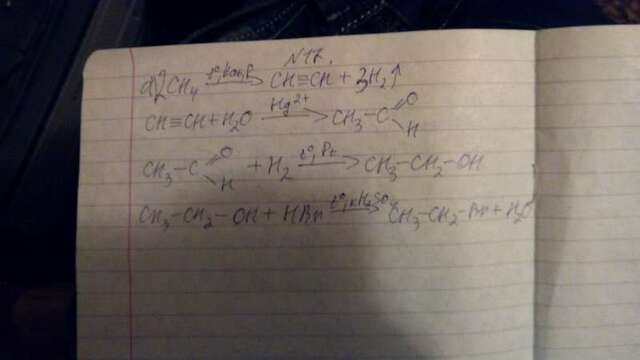 N17.
а) 2CH₄ —t°, кат, P→ CH≡CH + 3H₂↑
CH≡CH + H₂O —Hg²⁺→ CH₃–C(=O)–H
CH₃–C(=O)–H + H₂ —t°, Pt→ CH₃–CH₂–OH
CH₃–CH₂–OH + HBr —t°, кH₂SO₄→ CH₃–CH₂–Br + H₂O